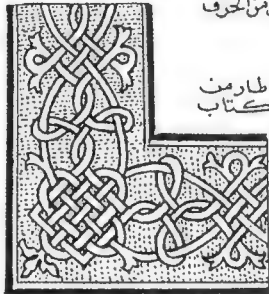 من الحرف
طار من
كتاب